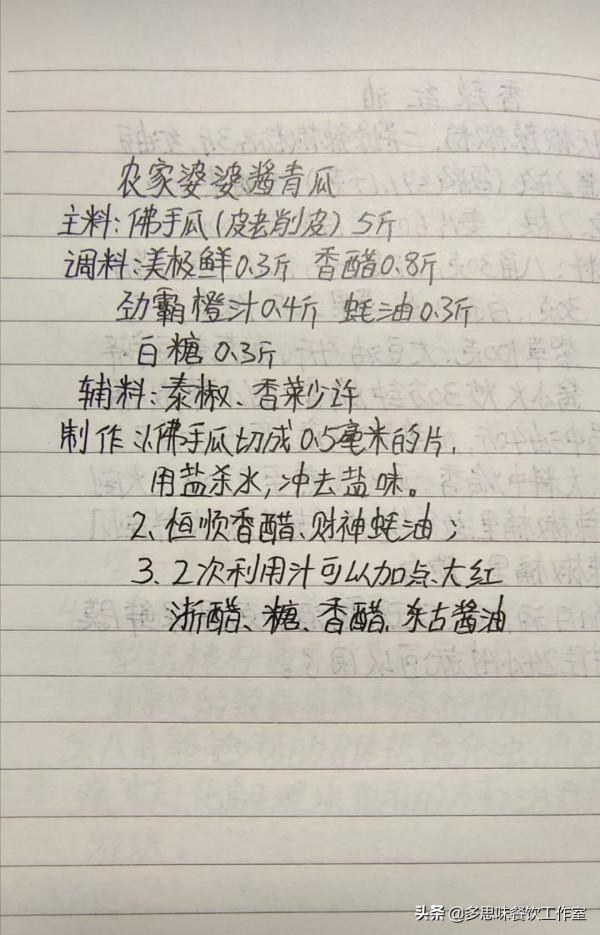 农家婆婆酱青瓜
主料:佛手瓜(皮老削皮)5斤
调料:美极鲜0.3斤 香醋0.8斤
劲霸橙汁0.4斤 蚝油0.3斤
白糖0.3斤
辅料:泰椒、香菜少许
制作:1.佛手瓜切成0.5毫米的片,
用盐杀水,冲去盐味。
2、恒顺香醋、财神蚝油;
3、2次利用汁可以加点、大红
浙醋、糖、香醋、东古酱油
头条 @多思味餐饮工作室